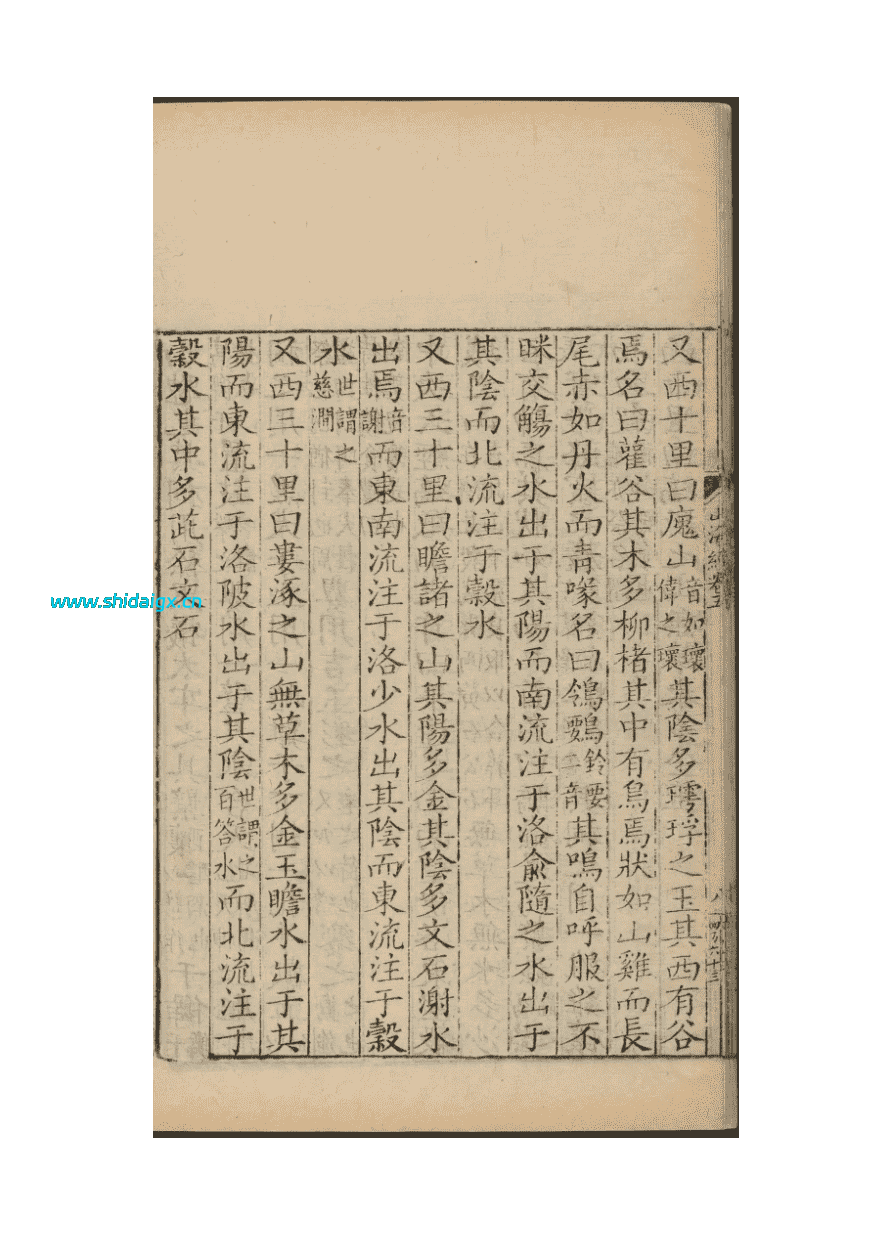 又西十里曰廆山音如瓌偉之瓌其陰多㻬琈之玉其西有谷
焉名曰雚谷其木多柳楮其中有鳥焉狀如山雞而長
尾赤如丹火而青喙名曰鴒䳩鈴要二音其鳴自呼服之不
眯交觴之水出于其陽而南流注于洛俞隨之水出于
其陰而北流注于穀水
又西三十里曰瞻諸之山其陽多金其陰多文石㴬水
出焉音謝而東南流注于洛少水出其陰而東流注于穀
水世謂之慈澗
又西三十里曰婁涿之山無草木多金玉瞻水出于其
陽而東流注于洛陂水出于其陰世謂之百答水而北流注于
穀水其中多茈石文石
山海經卷五
八
www.shidaigx.cn